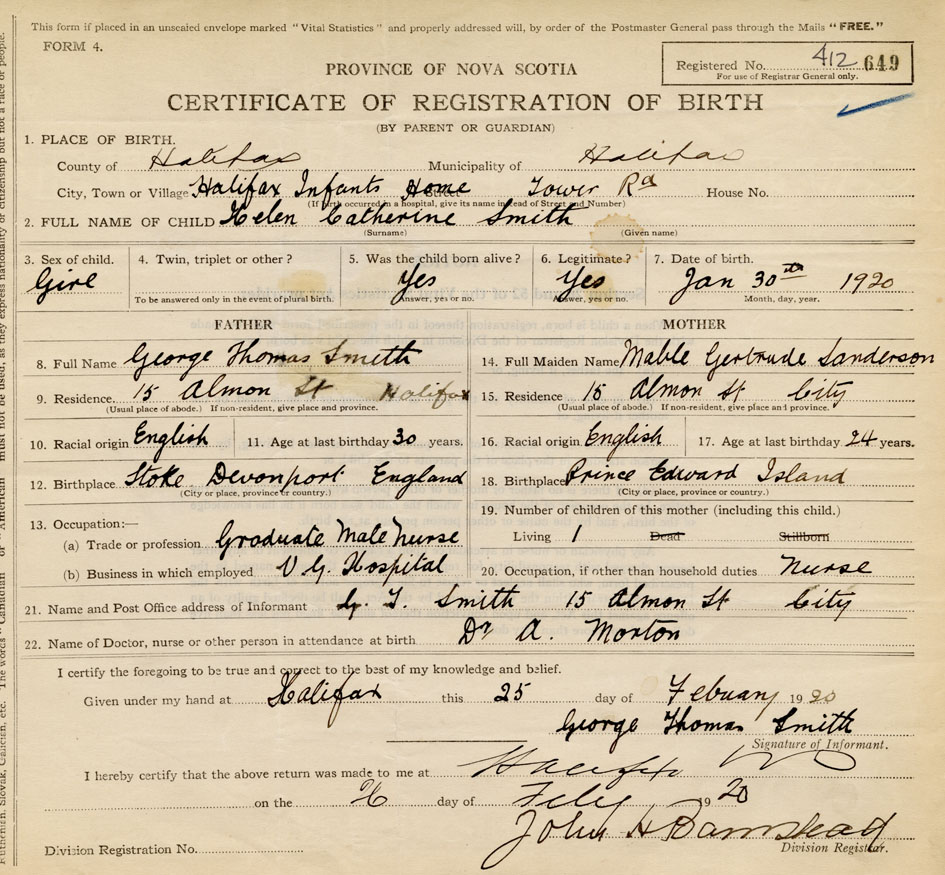 This form if placed in an unsealed envelope marked "Vital Statistics" and properly addressed will, by order of the Postmaster General pass through the Mails "FREE."
FORM 4.
Registered No. 412 649
For use of Registrar General only.
PROVINCE OF NOVA SCOTIA
CERTIFICATE OF REGISTRATION OF BIRTH
(BY PARENT OR GUARDIAN)
1. PLACE OF BIRTH.
County of Halifax Municipality of Halifax
City, Town or Village Halifax Infants Home Street Tower Rd House No.
(If birth occurred in a hospital, give its name instead of Street and Number)
2. FULL NAME OF CHILD Helen Catherine Smith
(Surname) (Given name)
3. Sex of child. 4. Twin, triplet or other? 5. Was the child born alive? 6. Legitimate? 7. Date of birth.
Girl Yes Yes Jan 30th 1920
To be answered only in the event of plural birth. Answer, yes or no. Answer, yes or no. Month, day, year.
FATHER MOTHER
8. Full Name George Thomas Smith 14. Full Maiden Name Mable Gertrude Sanderson
9. Residence. 15 Almon St Halifax 15. Residence 15 Almon St City
(Usual place of abode.) If non-resident, give place and province. (Usual place of abode.) If non-resident, give place and province.
10. Racial origin English 11. Age at last birthday 30 years. 16. Racial origin English 17. Age at last birthday 24 years.
12. Birthplace Stoke Devonport England 18. Birthplace Prince Edward Island
(City or place, province or country.) (City or place, province or country.)
13. Occupation:— 19. Number of children of this mother (including this child.)
(a) Trade or profession Graduate Male Nurse Living 1 Dead Stillborn
(b) Business in which employed V. G. Hospital 20. Occupation, if other than household duties Nurse
21. Name and Post Office address of Informant G. T. Smith 15 Almon St City
22. Name of Doctor, nurse or other person in attendance at birth. Dr A. Morton
I certify the foregoing to be true and correct to the best of my knowledge and belief.
Given under my hand at Halifax this 25 day of Febuary 1920
George Thomas Smith
Signature of Informant.
I hereby certify that the above return was made to me at Halifax
on the 26 day of Feby 1920
John H Barnstead
Division Registration No. Division Registrar.